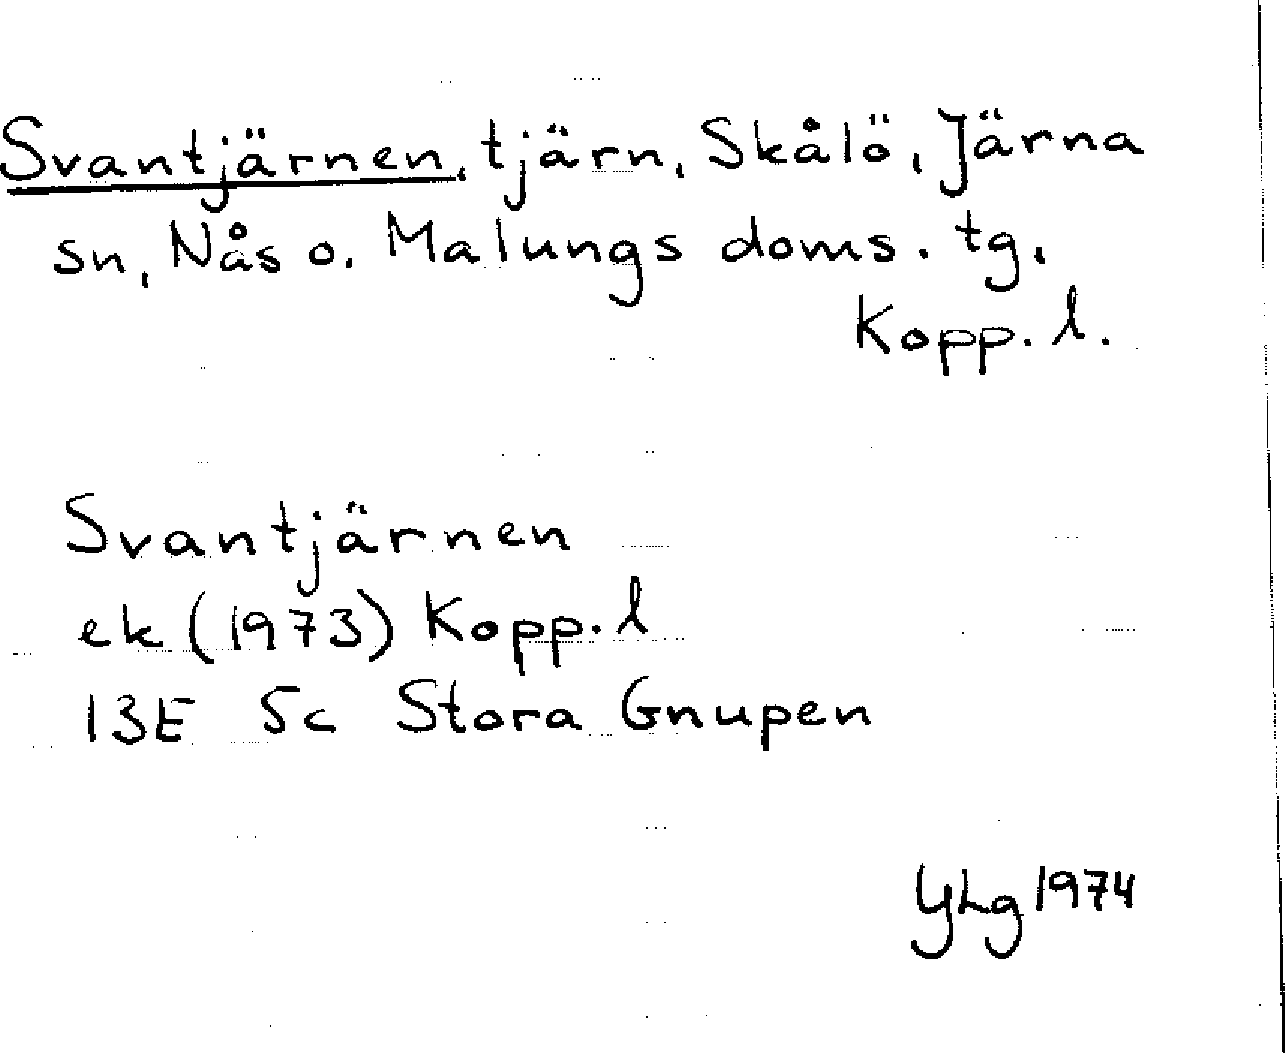 Svantjärnen, tjärn, Skålö, Järna
sn, Nås o. Malungs doms. tg.
Kopp. l.
Svantjärnen
ek (1973) Kopp. l
13E 5c Stora Gnupen
YLg 1974